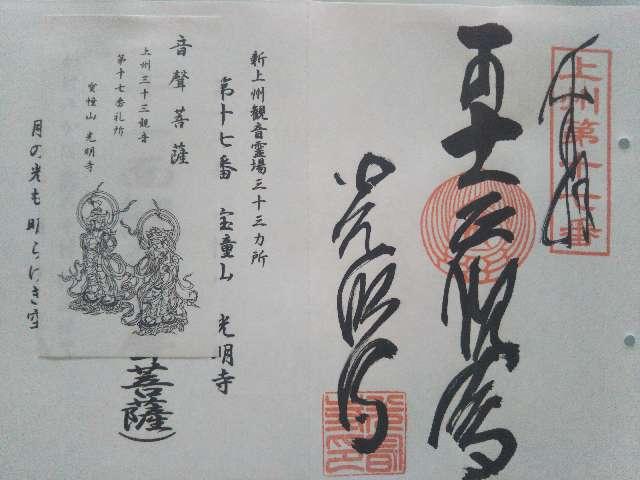 奉拝
上州第十七番
十一面観世音
光明寺
新上州観音霊場三十三カ所
第十七番 宝童山 光明寺
音聲菩薩
上州三十三観音
第十七番札所
宝幢山 光明寺
月の光も明らけき空
菩薩)